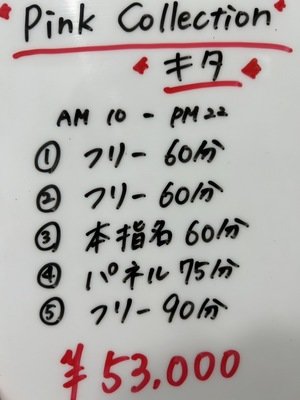 Pink Collection
キタ
AM 10 - PM 22
① フリー 60分
② フリー 60分
③ 本指名 60分
④ パネル 75分
⑤ フリー 90分
¥53.000